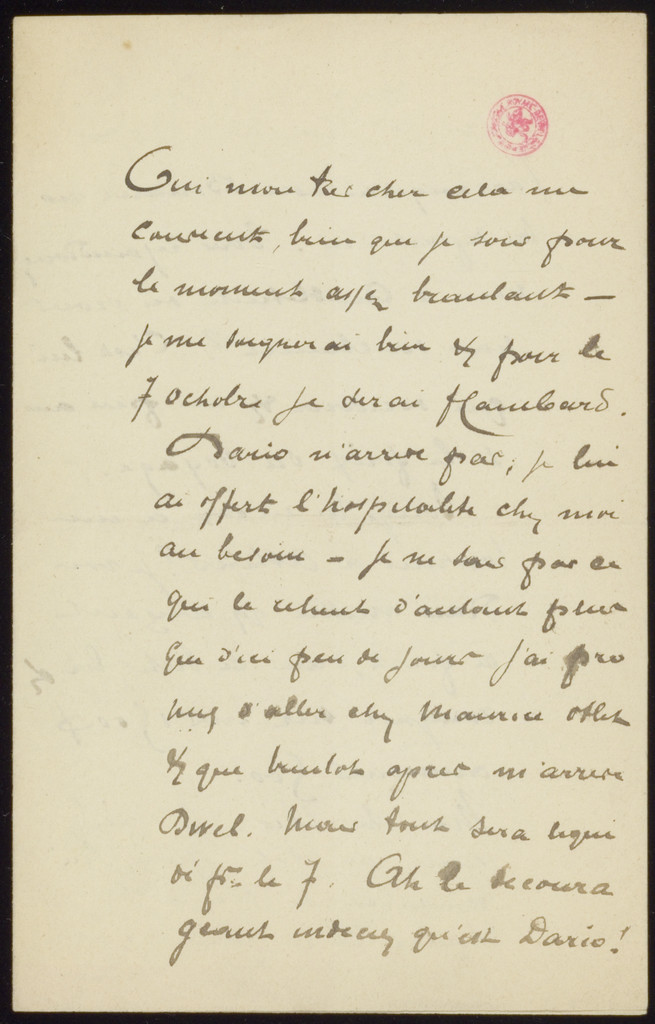 Oui mon tres cher cela me
convient, bien que je sois pour
le moment assez branlant –
je me soignerai bien & pour le
7 octobre je serai flambard.
Dario n'arrive pas; je lui
ai offert l'hospitalité chez moi
au besoin – je ne sais pas ce
qui le retient d'autant plus
que d'ici peu de jours j'ai pro
mis d'aller chez Maurice
& que bientot apres m'arrive
Mais tout sera liqui
dé pr le 7. Ah le decoura
geant indecis qu'est Dario!